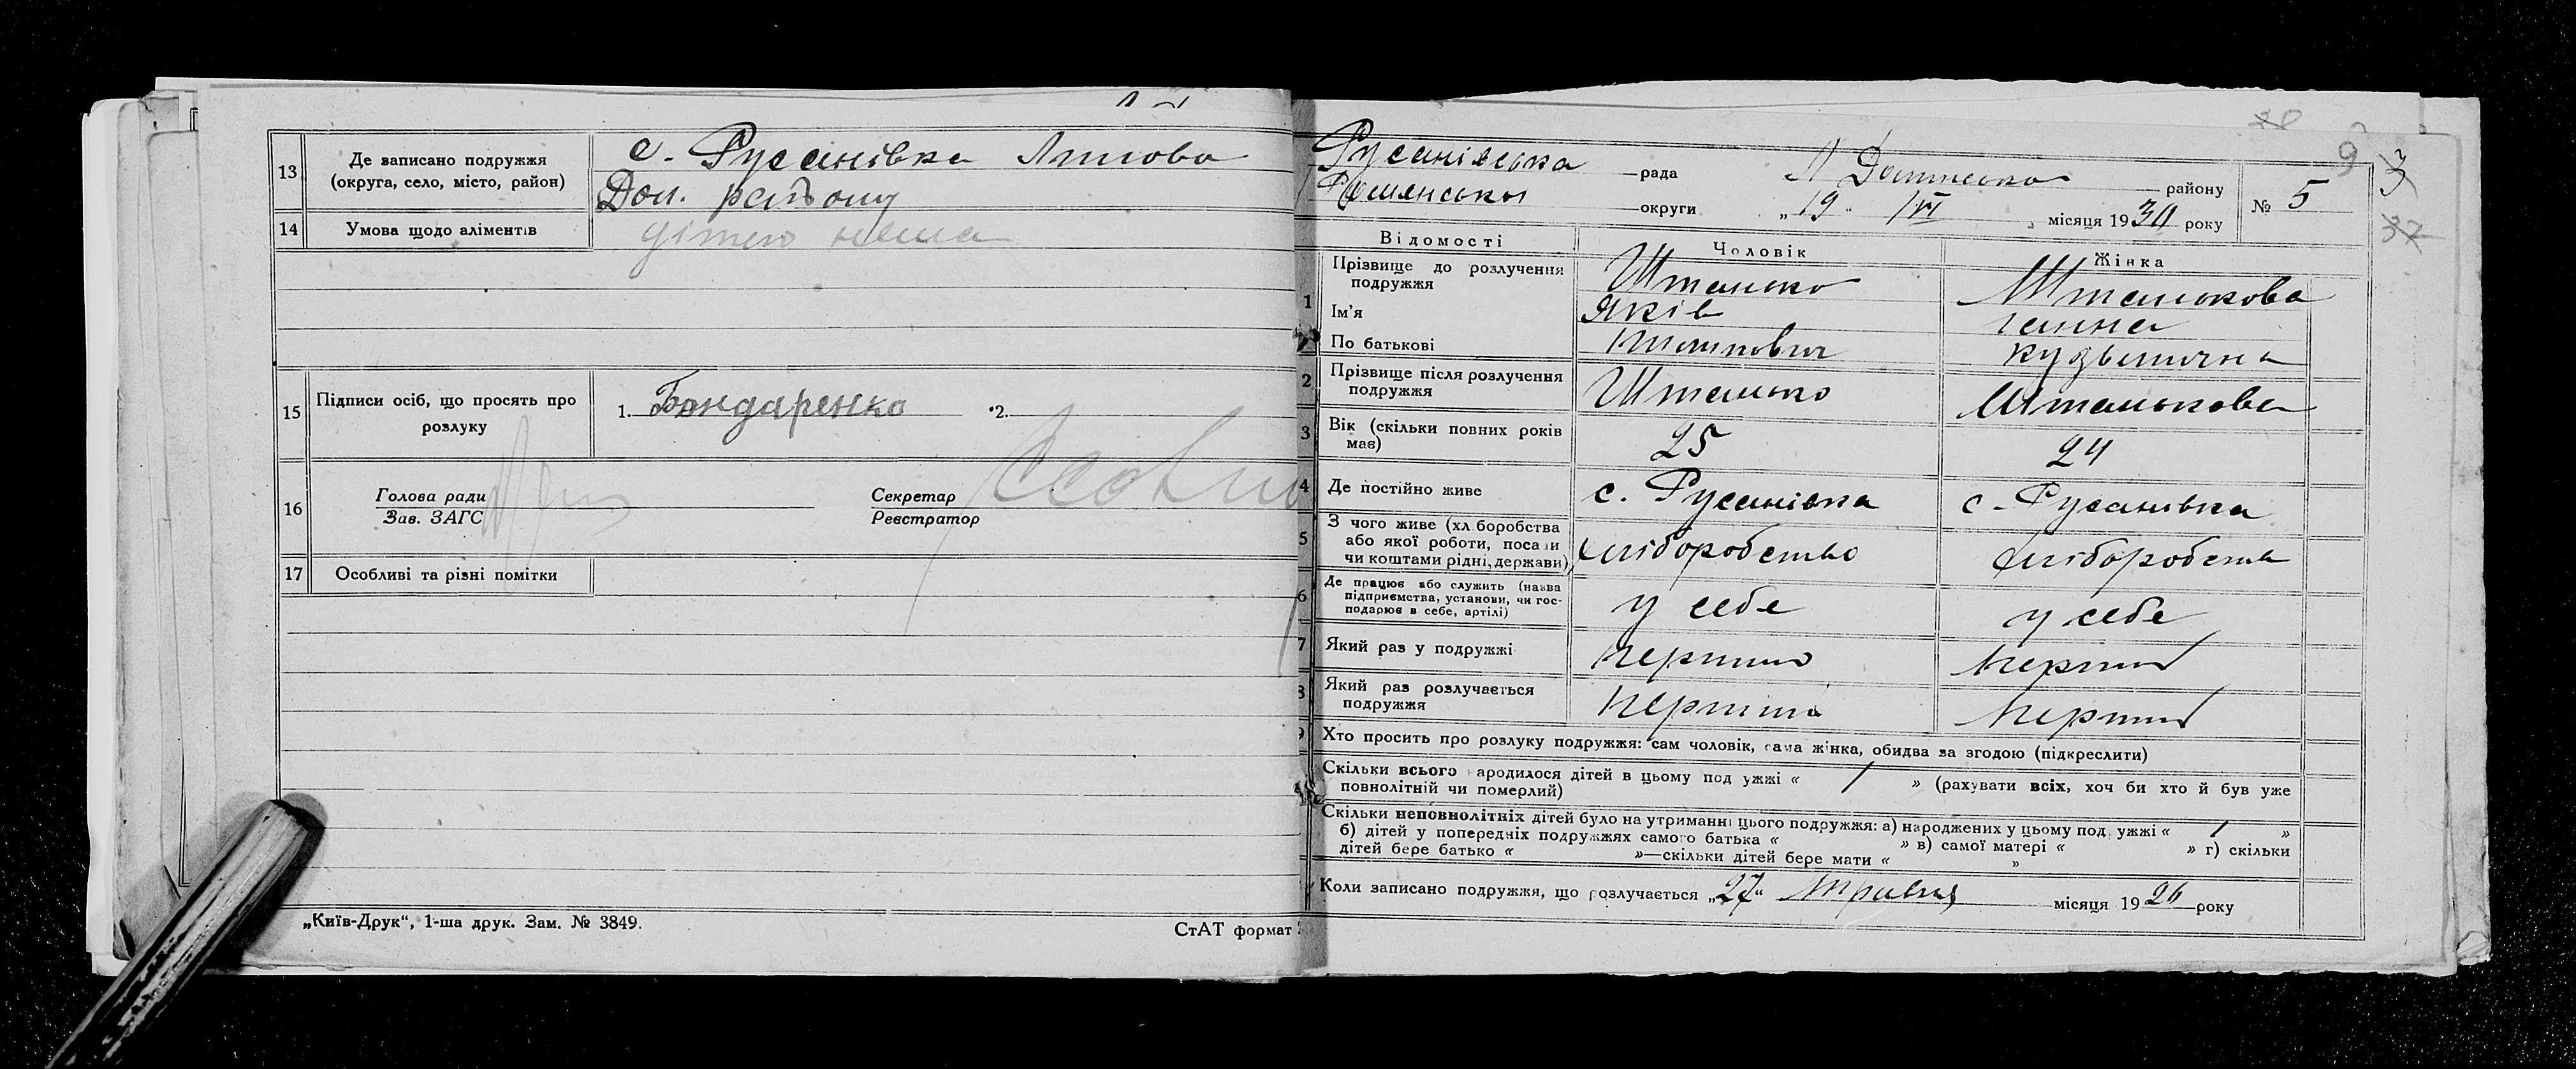 13 Де записано подружжя (округа, село, місто, район)
с. Русанівка Липово
Дол. району
14 Умова щодо аліментів
дітей нема
15 Підписи осіб, що просять про розлуку
1. Бондаренко 2.
16 Голова ради
Зав. ЗАГС
Секретар
Реєстратор
17 Особливі та різні помітки
„Київ-Друк“, 1-ша друк. Зам. № 3849.
СтАТ формат
Русанівська рада Л Долинського району
Роменської округи „19“ IVI місяця 1930 року
№ 5
9 3
37
Відомості Чоловік Жінка
1 Прізвище до розлучення подружжя Штанько Штанькова
Ім'я Яків Ганна
По батькові Кузьмична
2 Прізвище після розлучення подружжя Штанько Штанькова
3 Вік (скільки повних років має) 25 24
4 Де постійно живе с. Русанівка с. Русанівка
5 З чого живе (хліборобства або якої роботи, посади чи коштами рідні, держави) хліборобство хліборобства
6 Де працює або служить (назва підприємства, установи, чи господарює в себе, артілі) у себе у себе
7 Який раз у подружжі перший перший
8 Який раз розлучається подружжя перший перший
9 Хто просить про розлуку подружжя: сам чоловік, сама жінка, обидва за згодою (підкреслити)
Скільки всього народилося дітей в цьому подружжі « / » (рахувати всіх, хоч би хто й був уже
повнолітній чи померлий)
Скільки неповнолітніх дітей було на утриманні цього подружжя: а) народжених у цьому подружжі « / »
б) дітей у попередніх подружжях самого батька « » в) самої матері « » г) скільки
дітей бере батько « »—скільки дітей бере мати « »
Коли записано подружжя, що розлучається „27“ травня місяця 1926 року